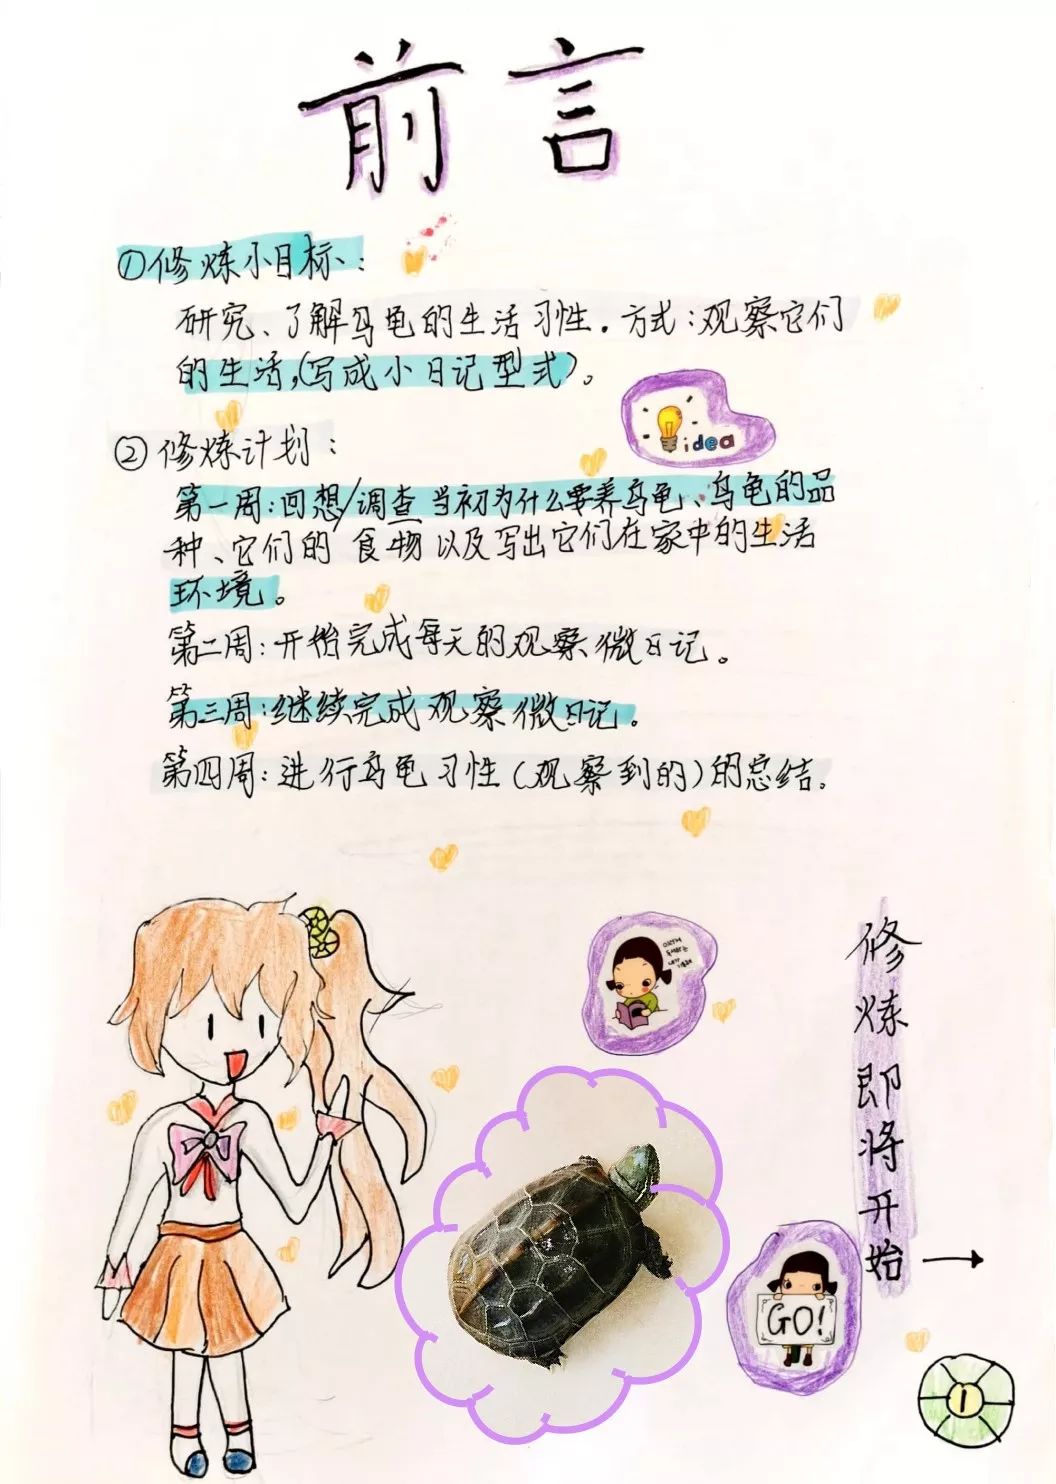 前言
①修炼小目标：
研究、了解乌龟的生活习性。方式：观察它们
的生活,(写成小日记型式)。
idea
②修炼计划：
第一周：回想/调查当初为什么要养乌龟、乌龟的品
种、它们的食物以及写出它们在家中的生活
环境。
第二周：开始完成每天的观察微日记。
第三周：继续完成观察微日记。
第四周：进行乌龟习性(观察到的)的总结。
修炼即将开始
GO!
1